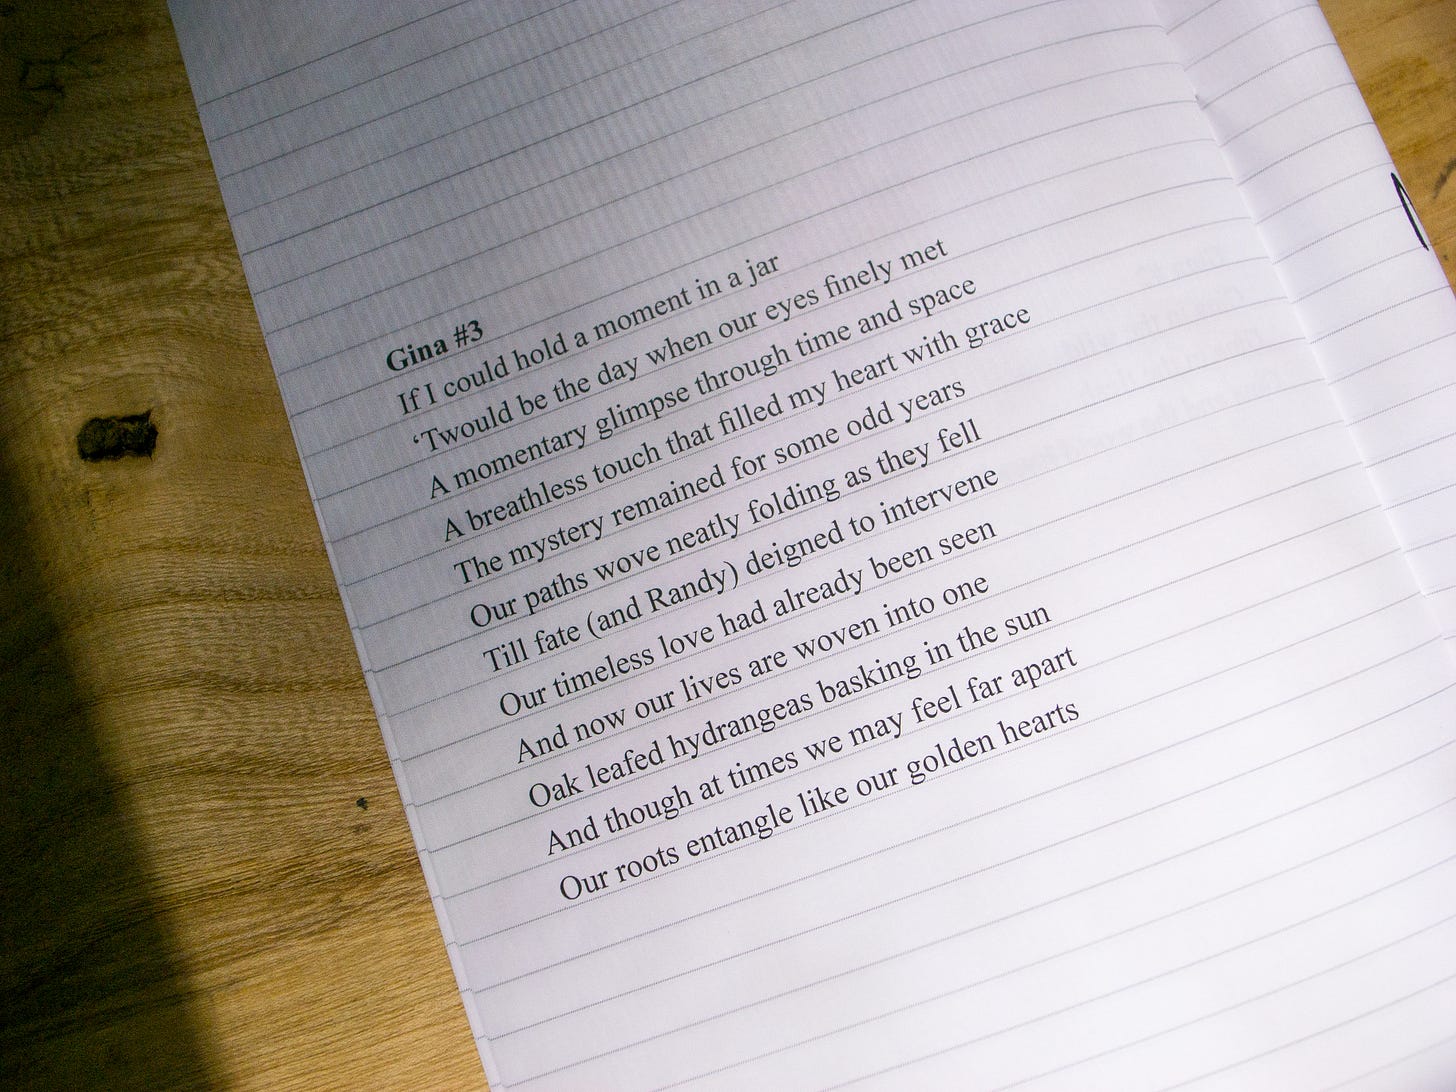 Gina #3
If I could hold a moment in a jar
‘Twould be the day when our eyes finely met
A momentary glimpse through time and space
A breathless touch that filled my heart with grace
The mystery remained for some odd years
Our paths wove neatly folding as they fell
Till fate (and Randy) deigned to intervene
Our timeless love had already been seen
And now our lives are woven into one
Oak leafed hydrangeas basking in the sun
And though at times we may feel far apart
Our roots entangle like our golden hearts